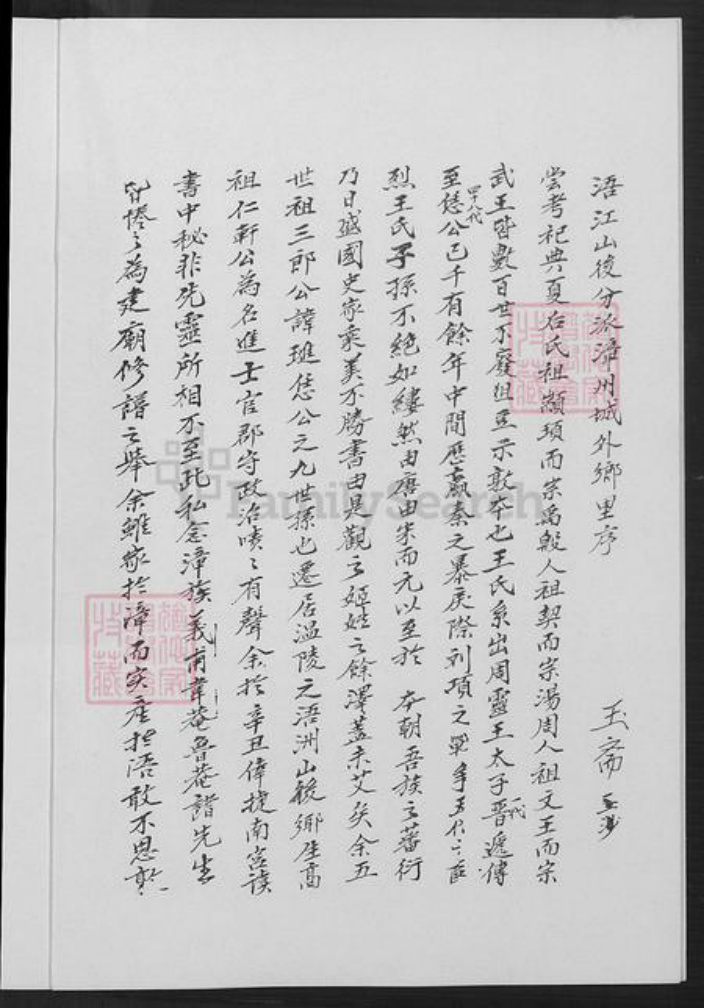 浯江山後分派漳州城外鄉里序
玉齋
嘗考祀典夏后氏祖顓頊而宗禹殷人祖契而宗湯周人祖文王而宗
武王皆數百世不廢俎豆示敦本也王氏系出周靈王太子晉一代遞傳
至恁公四十八代已千有餘年中間歷嬴秦之暴戾際劉項之戰爭五代之
烈王氏子孫不絕如縷然由唐由宋而元以至於 本朝吾族之蕃衍
乃日盛國史家乘美不勝書由是觀之姬姓之餘澤蓋未艾矣余五
世祖三郎公諱琟恁公之九世孫也遷居溫陵之浯洲山後鄉生高
祖仁軒公為名進士官郡守政治嘖嘖有聲余於辛丑倖捷南宮讀
書中秘非先靈所相不至此私念漳族義甫韋菴魯菴諸先生
皆惓惓為建廟修譜之舉余雖家於漳而实產於浯敢不思
FamilySearch